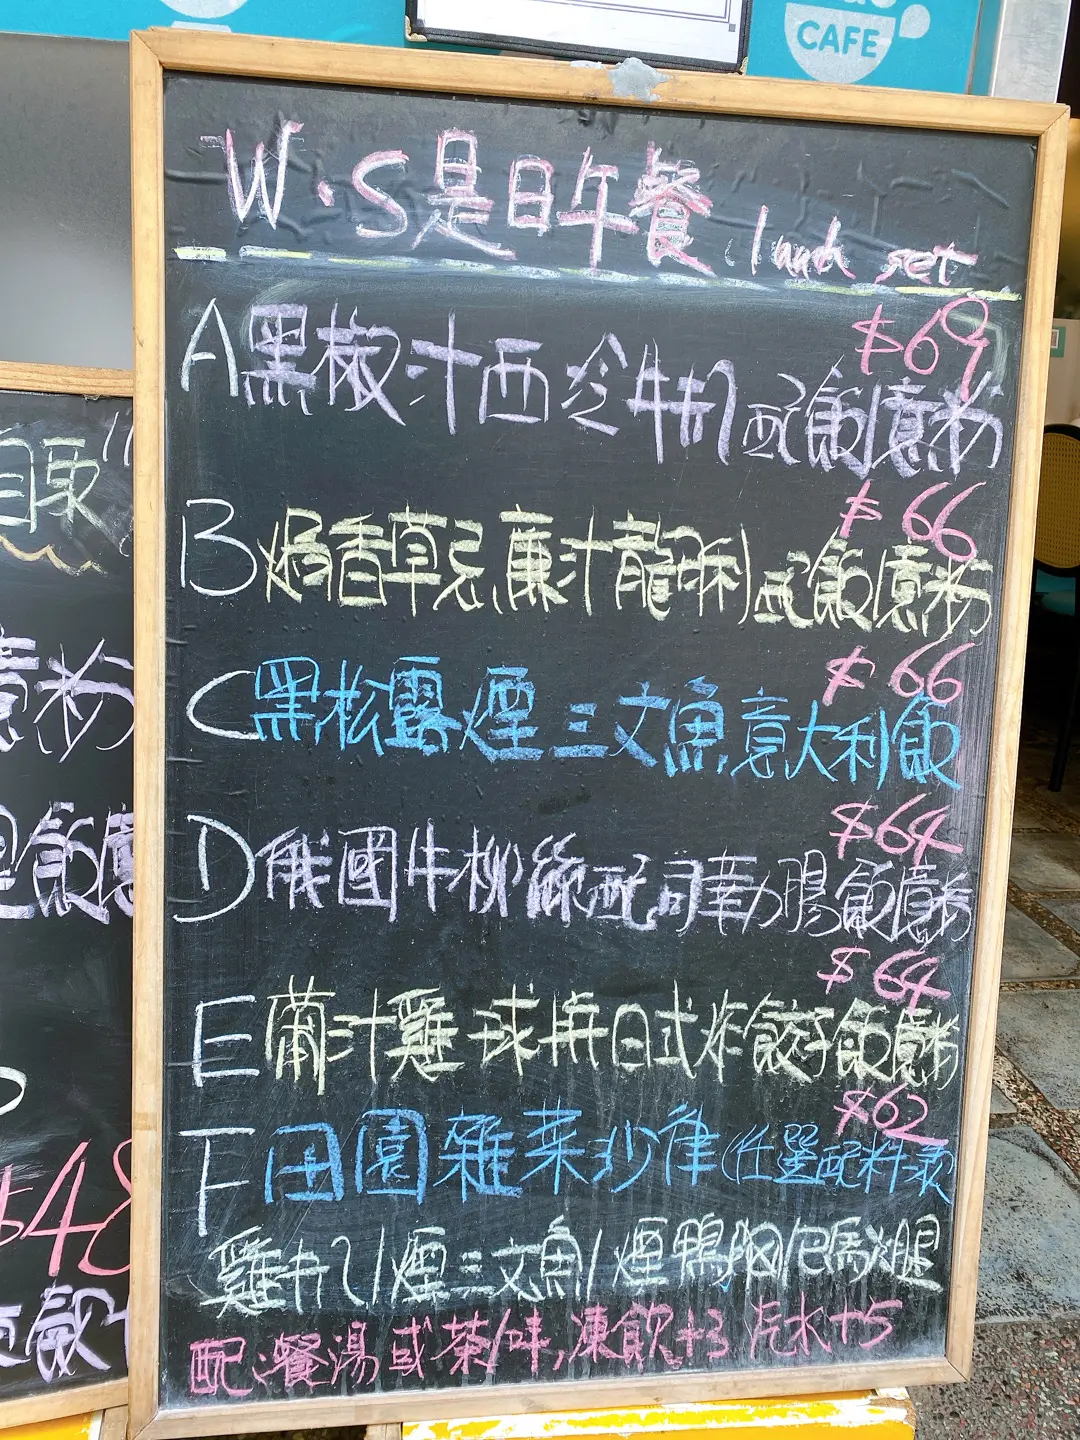 CAFE
W.S是日午餐 lunch set
$69
A黑椒汁西冷牛扒配飯/意粉
$66
B焗香草忌廉汁龍脷配飯/意粉
$66
C黑松露煙三文魚意大利飯
$64
D俄國牛柳絲配司華力腸飯/意粉
$64
E葡汁雞球拼日式炸餃子飯/意粉
$62
F田園雜菜沙律(任選配料1款
雞扒/煙三文魚/煙鴨胸/巴馬火腿
配:餐湯或茶/啡,凍飲+3 汽水+5
意粉
$48